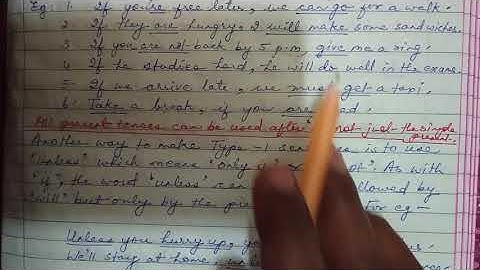 Eg: 1. If you're free later, we can go for a walk.
2. If they are hungry, I will make some sandwiches.
3. If you are not back by 5 p.m give me a ring.
4. If he studies hard, he will do well in the exams.
5. If we arrive late, we must get a taxi.
6. Take a break, if you are tired.
All present tenses can be used after not just the simple present.
Another way to make Type-1 is to use
"unless" which means "only if" As with
"if", the word "unless" can followed by
"will" but only by the for eg-
Unless you hurry up,
We'll stay at home